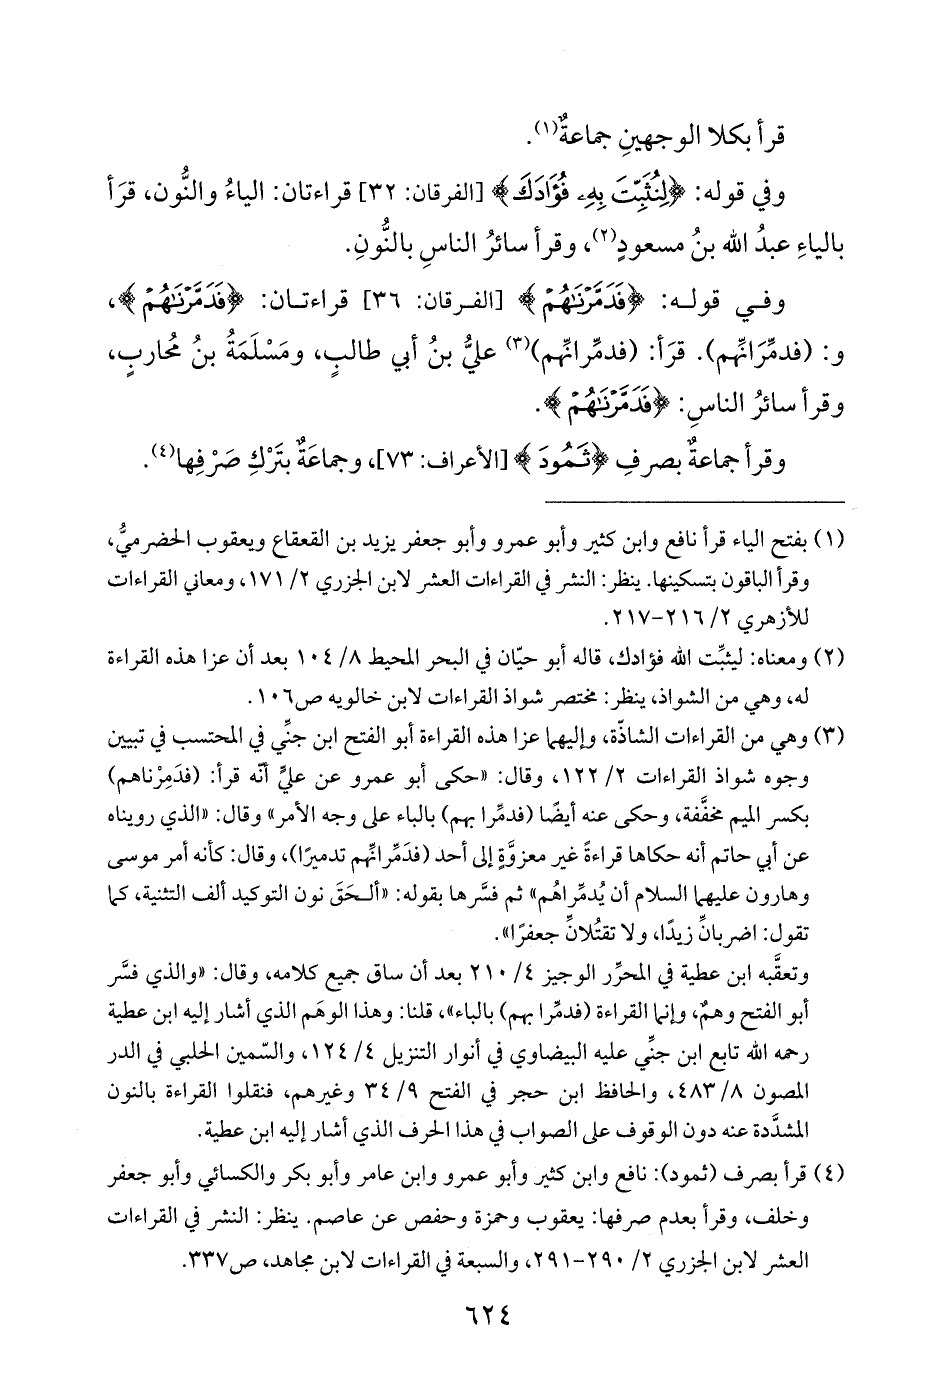 قرأ بكلا الوجهينِ جماعةٌ(١).
وفي قوله: ﴿لِنُثَبِّتَ بِهِۦ فُؤَادَكَ﴾ [الفرقان: ٣٢] قراءتان: الياءُ والنُّون، قرَأ
بالياءِ عبدُ الله بنُ مسعودٍ(٢)، وقرأ سائرُ الناسِ بالنُّونِ.
وفي قوله: ﴿فَدَمَّرْنَٰهُمْ﴾ [الفرقان: ٣٦] قراءتان: ﴿فَدَمَّرْنَٰهُمْ﴾،
و: (فدمِّرَانِّهم). قرَأ: (فدمِّرانِّهم)(٣) عليُّ بنُ أبي طالبٍ، ومَسْلَمَةُ بنُ محُاربٍ،
وقرأ سائرُ الناسِ: ﴿فَدَمَّرْنَٰهُمْ﴾.
وقرأ جماعةٌ بصرفِ ﴿ثَمُودَ﴾ [الأعراف: ٧٣]، وجماعَةٌ بتَرْكِ صَرْفِها(٤).
(١) بفتح الياء قرأ نافع وابن كثير وأبو عمرو وأبو جعفر يزيد بن القعقاع ويعقوب الحضرميُّ،
وقرأ الباقون بتسكينها. ينظر: النشر في القراءات العشر لابن الجزري ٢/ ١٧١، ومعاني القراءات
للأزهري ٢/ ٢١٦-٢١٧.
(٢) ومعناه: ليثبِّت الله فؤادك، قاله أبو حيّان في البحر المحيط ٨/ ١٠٤ بعد أن عزا هذه القراءة
له، وهي من الشواذ، ينظر: مختصر شواذ القراءات لابن خالويه ص١٠٦.
(٣) وهي من القراءات الشاذّة، وإليهما عزا هذه القراءة أبو الفتح ابن جنِّي في المحتسب في تبيين
وجوه شواذ القراءات ٢/ ١٢٢، وقال: «حكى أبو عمرو عن عليٍّ أنّه قرأ: (فدَمِرْناهم)
بكسر الميم مخفَّفة، وحكى عنه أيضًا (فدمِّرا بهم) بالباء على وجه الأمر» وقال: «الذي رويناه
عن أبي حاتم أنه حكاها قراءةً غير معزوَّةٍ إلى أحد (فدَمِّرانِّهم تدميرًا)، وقال: كأنه أمر موسى
وهارون عليهما السلام أن يُدمِّراهُم» ثم فسَّرها بقوله: «ألحَقَ نون التوكيد ألف التثنية، كما
تقول: اضربانِّ زيدًا، ولا تقتُلانِّ جعفرًا».
وتعقَّبه ابن عطية في المحرِّر الوجيز ٤/ ٢١٠ بعد أن ساق جميع كلامه، وقال: «والذي فسَّر
أبو الفتح وهمٌ، وإنما القراءة (فدمِّرا بهم) بالباء»، قلنا: وهذا الوهَم الذي أشار إليه ابن عطية
رحمه الله تابع ابن جنِّي عليه البيضاوي في أنوار التنزيل ٤/ ١٢٤، والسّمين الحلبي في الدر
المصون ٨/ ٤٨٣، والحافظ ابن حجر في الفتح ٩/ ٣٤ وغيرهم، فنقلوا القراءة بالنون
المشدَّدة عنه دون الوقوف على الصواب في هذا الحرف الذي أشار إليه ابن عطية.
(٤) قرأ بصرف (ثمود): نافع وابن كثير وأبو عمرو وابن عامر وأبو بكر والكسائي وأبو جعفر
وخلف، وقرأ بعدم صرفها: يعقوب وحمزة وحفص عن عاصم. ينظر: النشر في القراءات
العشر لابن الجزري ٢/ ٢٩٠-٢٩١، والسبعة في القراءات لابن مجاهد، ص٣٣٧.
٦٢٤